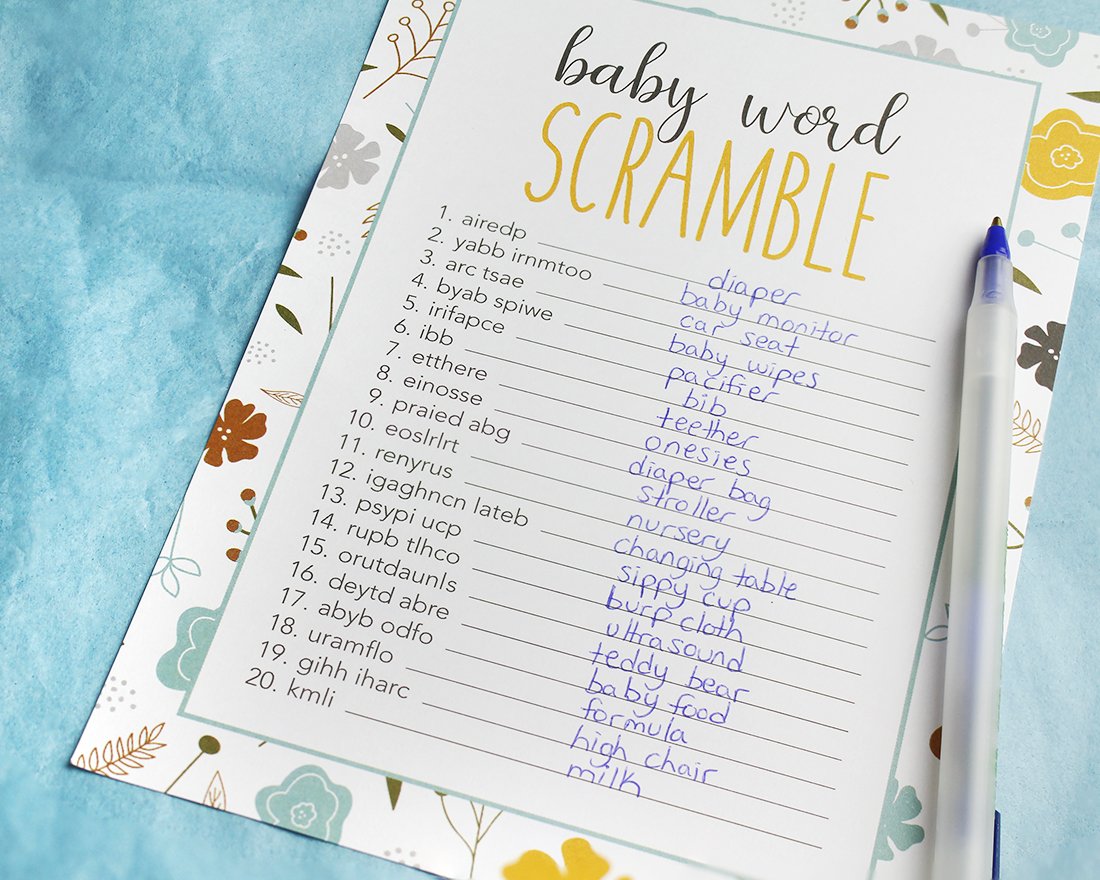 baby word
SCRAMBLE
1. airedp diaper
2. yabb irnmtoo baby monitor
3. arc tsae car seat
4. byab spiwe baby wipes
5. irifapce pacifier
6. ibb bib
7. etthere teether
8. einosse onesies
9. praied abg diaper bag
10. eoslrlrt stroller
11. renyrus nursery
12. igaghncn lateb changing table
13. psypi ucp sippy cup
14. rupb tlhco burp cloth
15. orutdaunls ultrasound
16. deytd abre teddy bear
17. abyb odfo baby food
18. uramflo formula
19. gihh iharc high chair
20. kmli milk